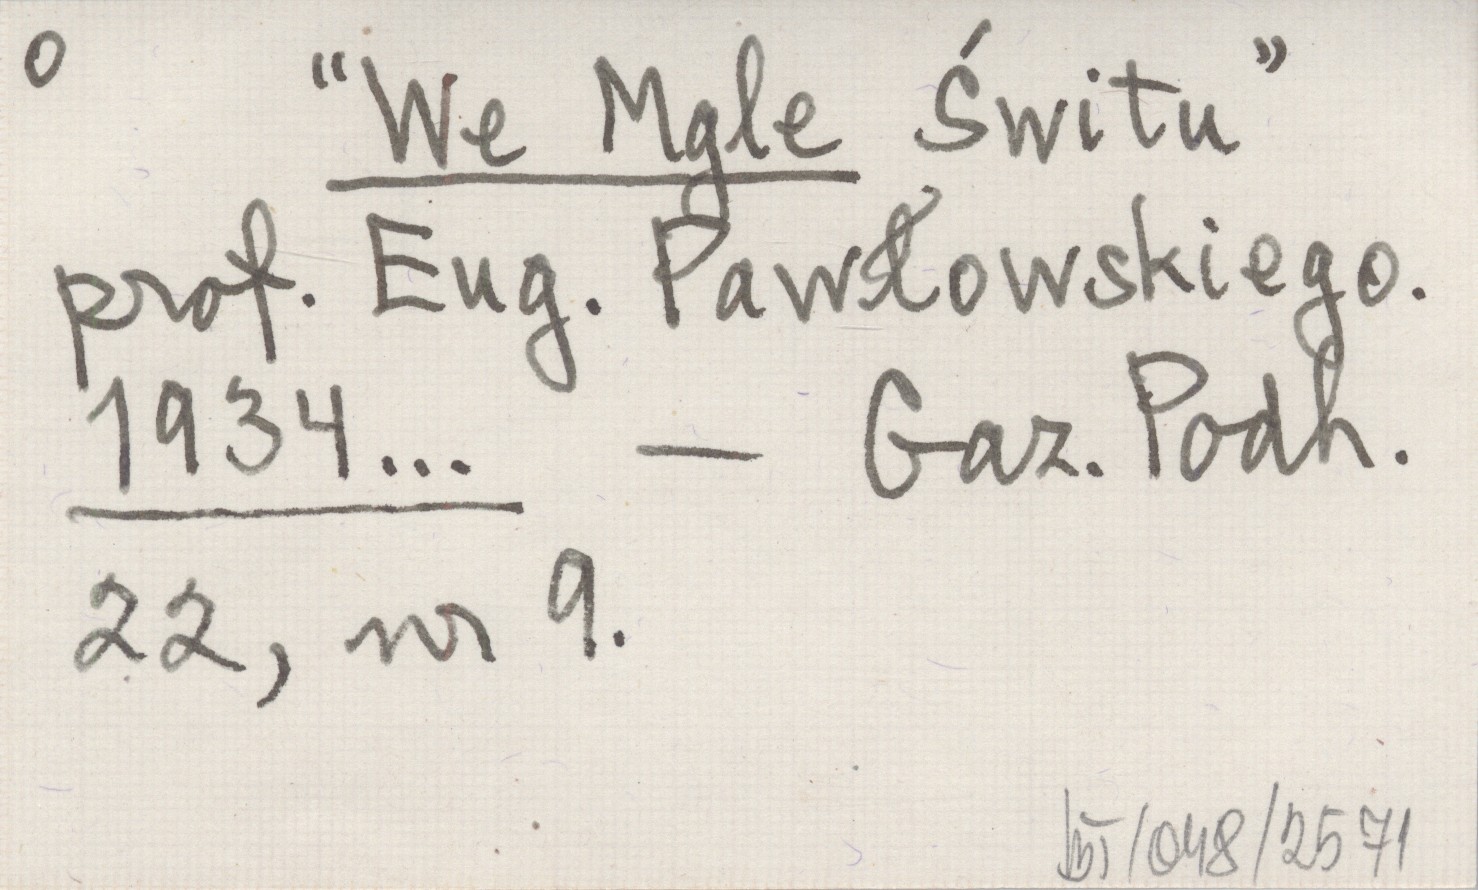 o "We Mgle świtu"
prof. Eug. Pawłowskiego.
1934... — Gaz. Podh.
22, nr 9.
/048/2571